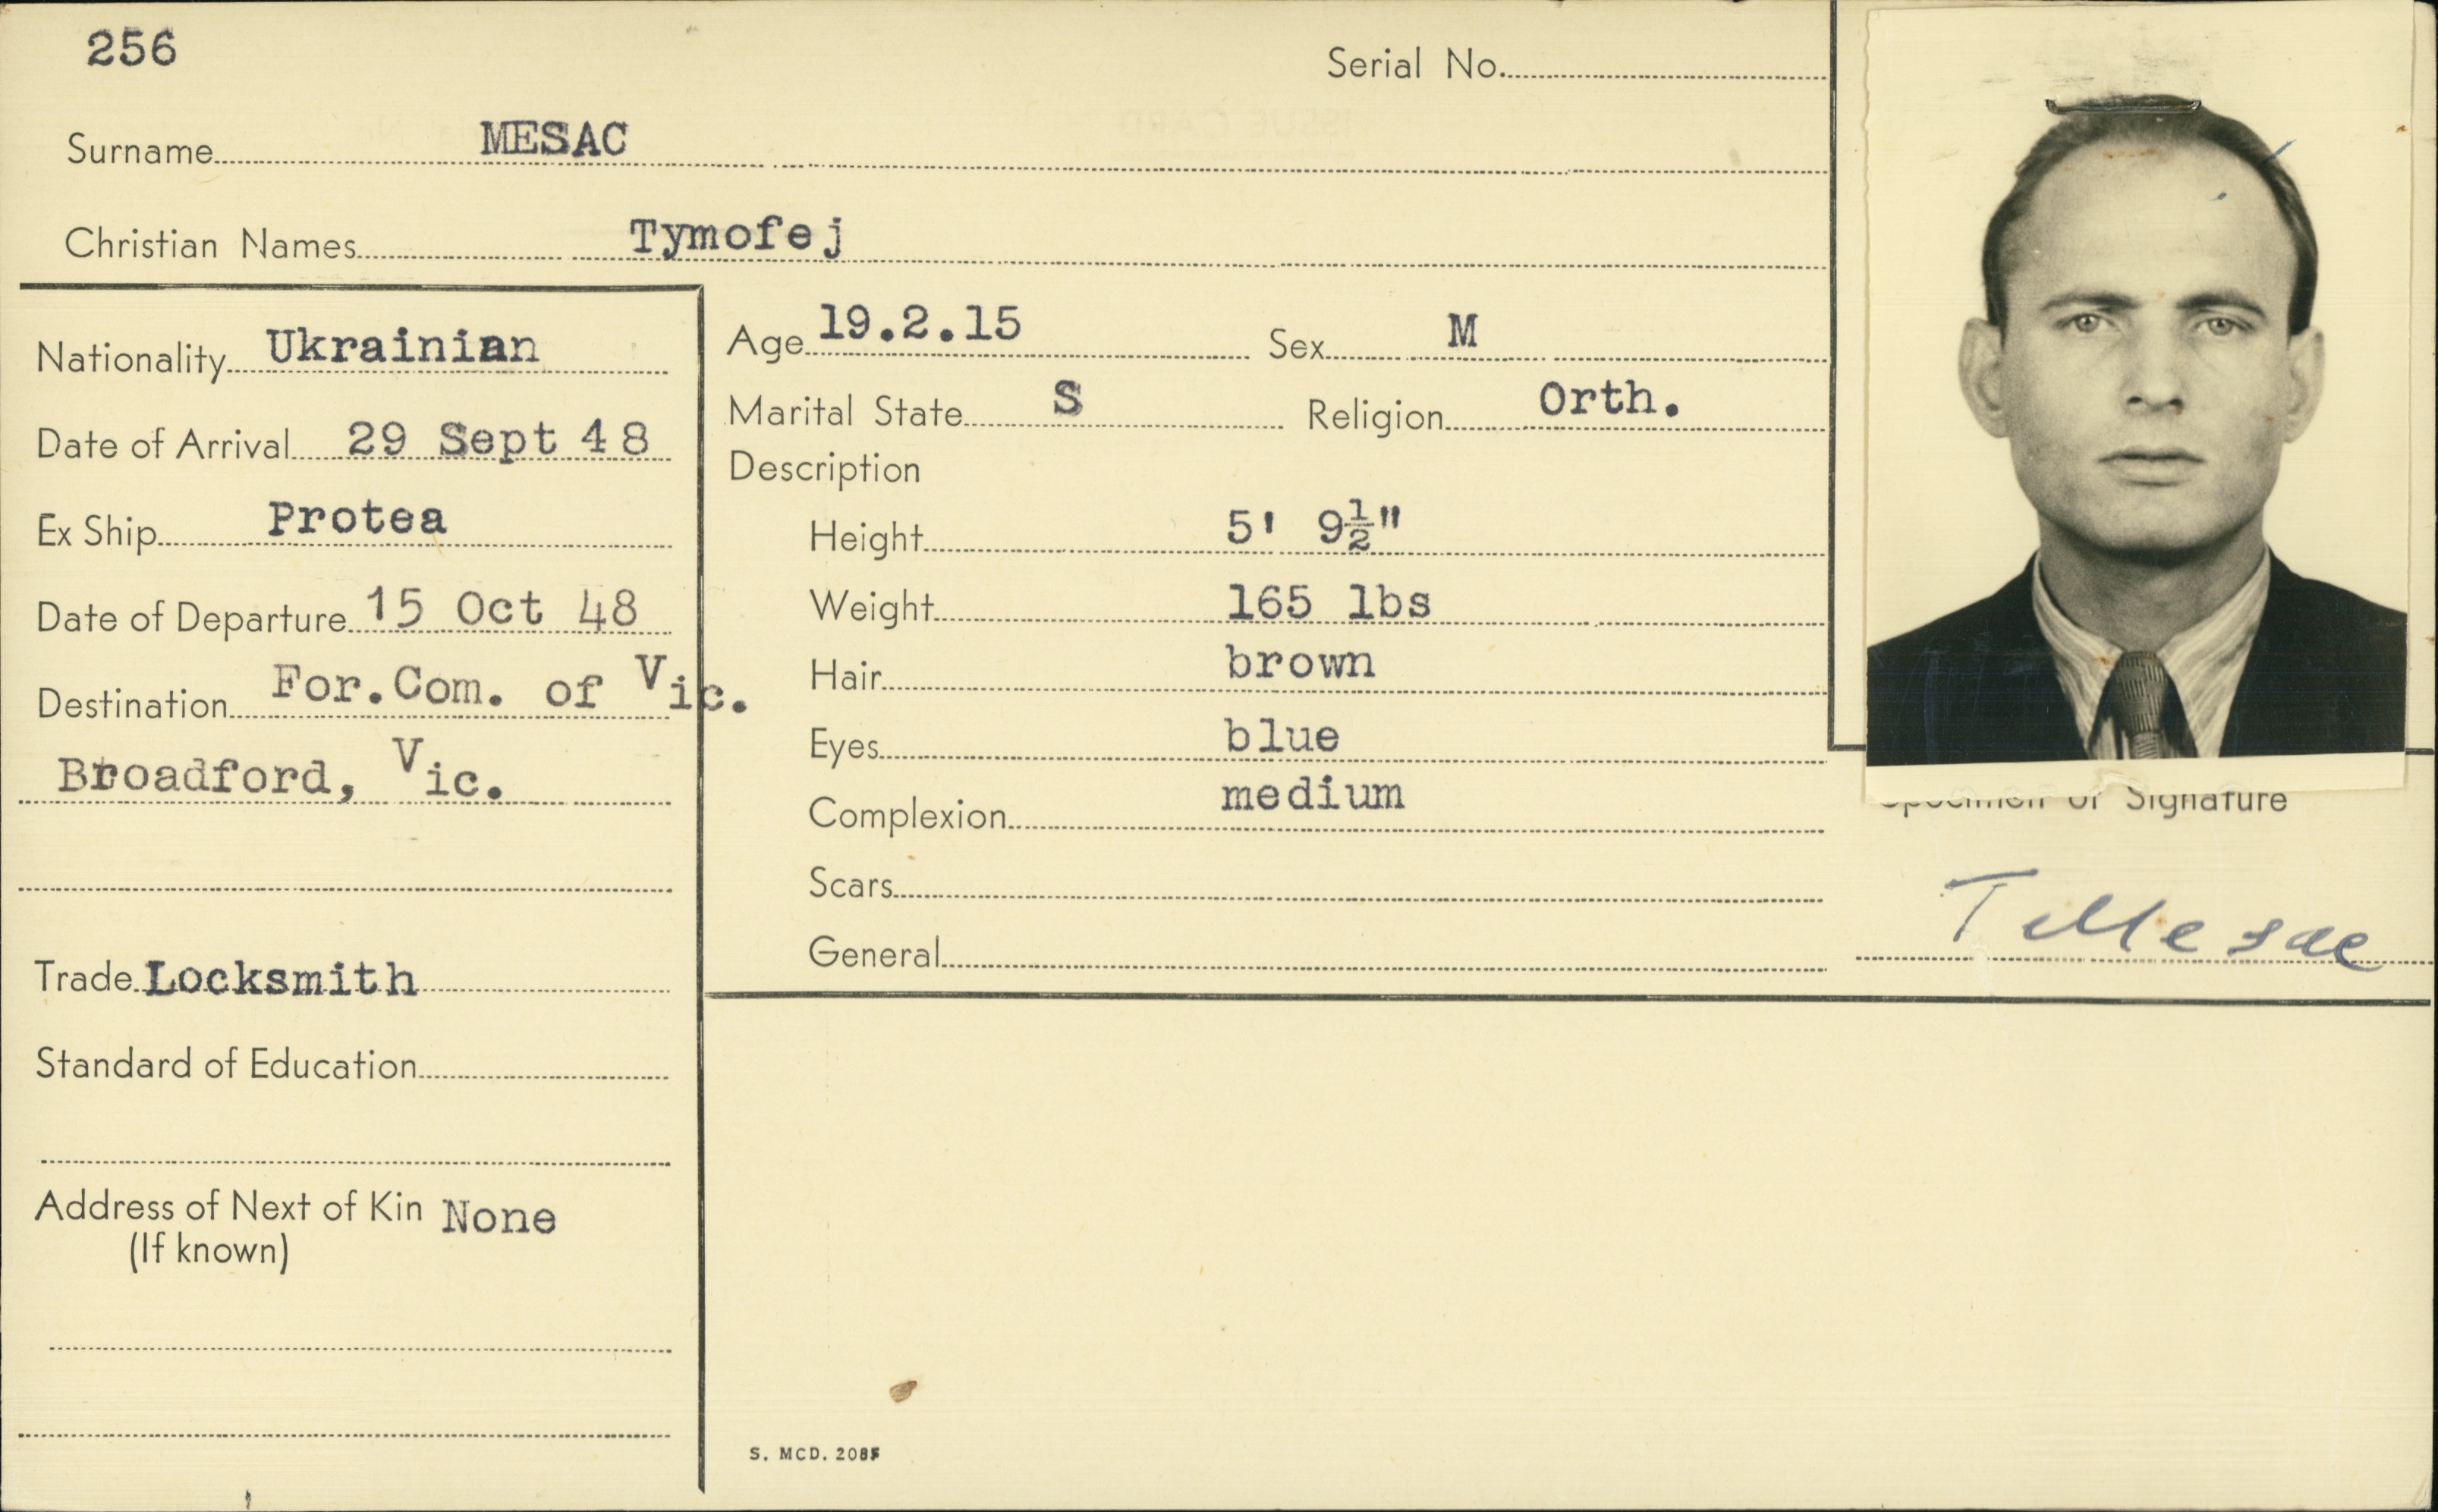 256
Serial No.
Surname MESAC
Christian Names Tymofej
Nationality Ukrainian
Date of Arrival 29 Sept 48
Ex Ship Protea
Date of Departure 15 Oct 48
Destination For.Com. of Vic.
Broadford, Vic.
Trade Locksmith
Standard of Education
Address of Next of Kin None
(If known)
Age 19.2.15 Sex M
Marital State S Religion Orth.
Description
Height 5' 9½"
Weight 165 lbs
Hair brown
Eyes blue
Complexion medium
Scars
General
Specimen of Signature
T Mesac
S. MCD. 208